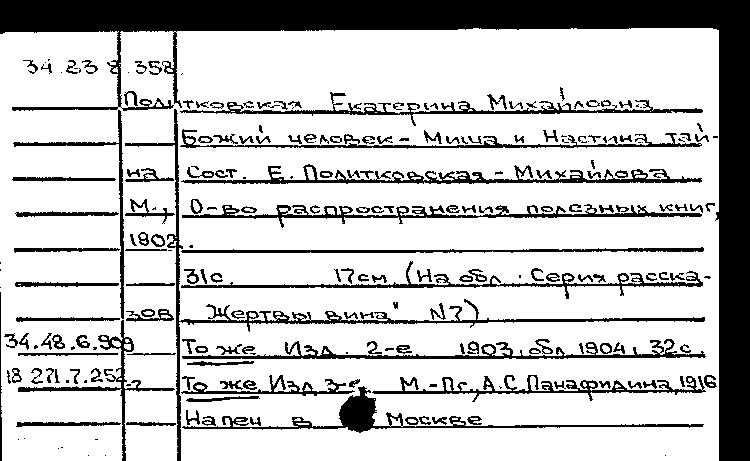 34 23 8 358
Политковская Екатерина Михайловна
Божий человек - Миша и Настина тай-
на Сост. Е. Политковская - Михайлова
М., О-во распространения полезных книг,
1902.
31с. 17см (На обл.: Серия расска-
зов „Жертвы вина" N7)
34.48.6.909 То же Изд. 2-е. 1903, обл 1904, 32с.
18 271.7.252 То же. Изд 3-е. М.-Пг., А.С. Панафидина, 1916
Напеч в Москве